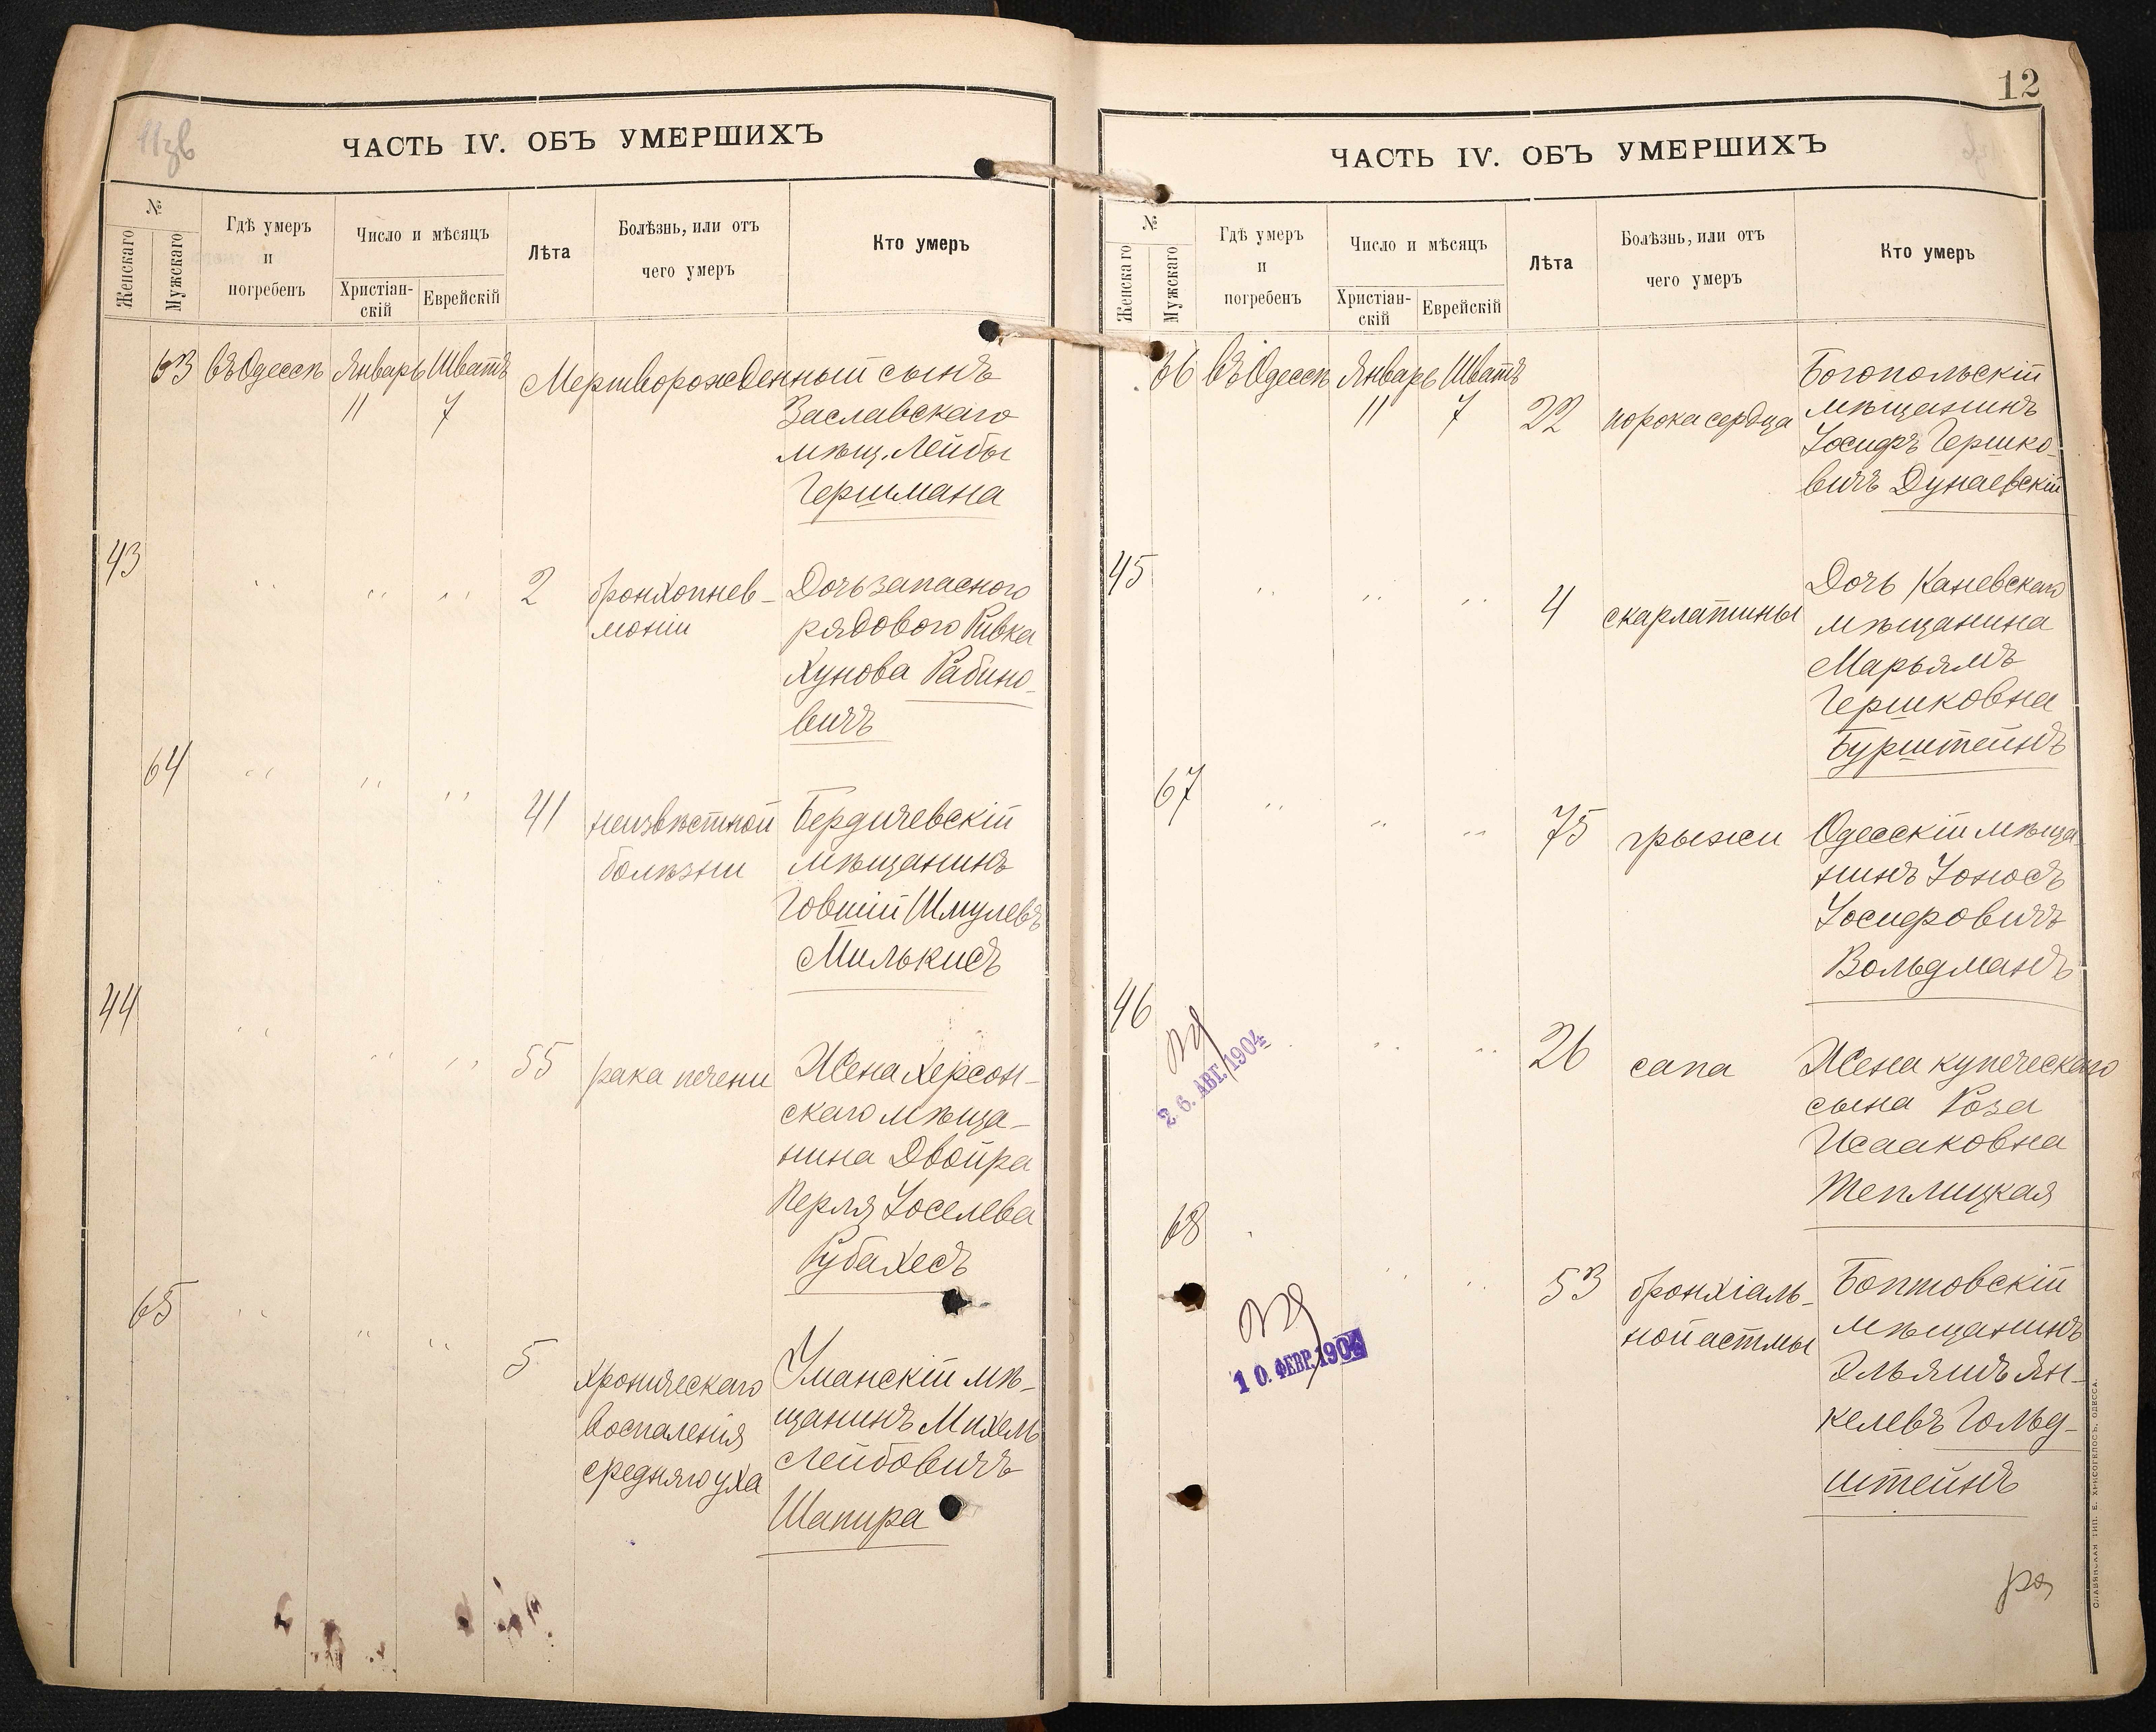 11зв
ЧАСТЬ IV. ОБЪ УМЕРШИХЪ
№
Женскаго
Мужскаго
Гдѣ умеръ
и
погребенъ
Число и мѣсяцъ
Христіан-
скій
Еврейскій
Лѣта
Болѣзнь, или отъ
чего умеръ
Кто умеръ
63 въ Одессѣ Январь Шватъ Мертворожденный сынъ
11 7 Заславскаго
мѣщ. Лейбы
Гершмана
43 " " " 2 бронхопнев- Дочь запасного
моніи рядового Ривка
Хунова Рабино-
вичъ
64 " " " 41 неизвѣстной Бердичевскій
болѣзни мѣщанинъ
Говшій Шмулевъ
Милькисъ
44 " " " 55 рака печени Жена Херсон-
скаго мѣща-
нина Двойра
Перля Іоселева
Рубахесъ
65 " " " 5 хроническаго Уманскій мѣ-
воспаленія щанинъ Михель
средняго уха Лейбовичъ
Шапира
12
ЧАСТЬ IV. ОБЪ УМЕРШИХЪ
№
Женскаго
Мужскаго
Гдѣ умеръ
и
погребенъ
Число и мѣсяцъ
Христіан-
скій
Еврейскій
Лѣта
Болѣзнь, или отъ
чего умеръ
Кто умеръ
66 въ Одессѣ Январь Шватъ Богопольскій
11 7 22 порока сердца мѣщанинъ
Іосифъ Гершко-
вичъ Дунаевскій
45 " " " 4 скарлатины Дочь Каневскаго
мѣщанина
Марьямъ
Гершковна
Бурштейнъ
67 " " " 75 грыжи Одесскій мѣща-
нинъ Іоносъ
Іосифовичъ
Вольдманъ
46 " " " 26 сапа Жена купеческаго
2 6. АВГ. 1904
сына Роза
Исааковна
Теплицкая
68 " " " 53 бронхіаль- Боптовскій
ной астмы мѣщанинъ
Эльяшъ Ян-
келевъ Гольд-
штейнъ
1 0. ФЕВР. 1904
СЛАВЯНСКАЯ ТИП. Е. ХРИСОГЕЛОСЪ, ОДЕССА.